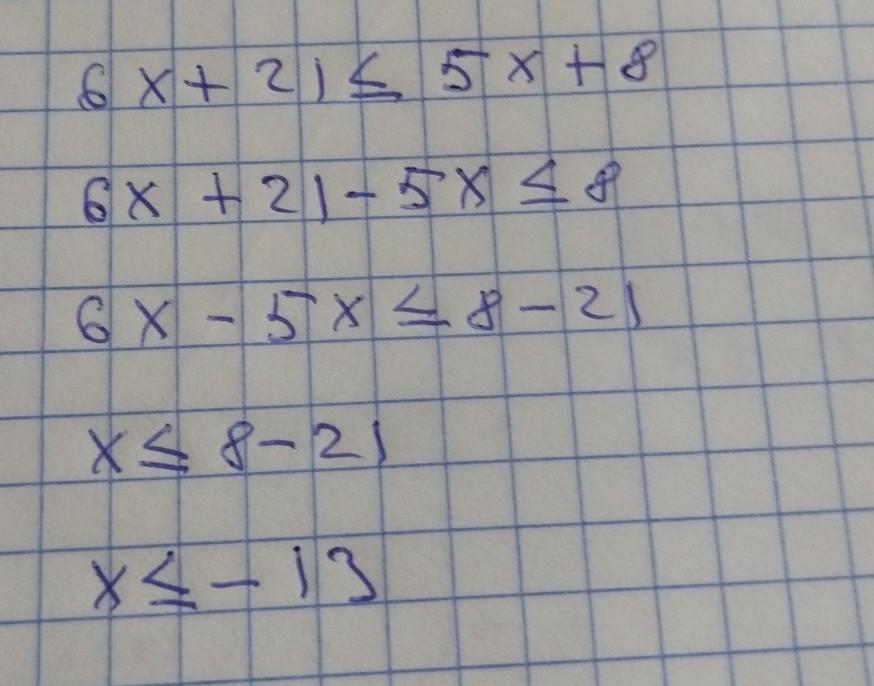 6x + 21 ≤ 5x + 8
6x + 21 - 5x ≤ 8
6x - 5x ≤ 8 - 21
x ≤ 8 - 21
x ≤ - 13